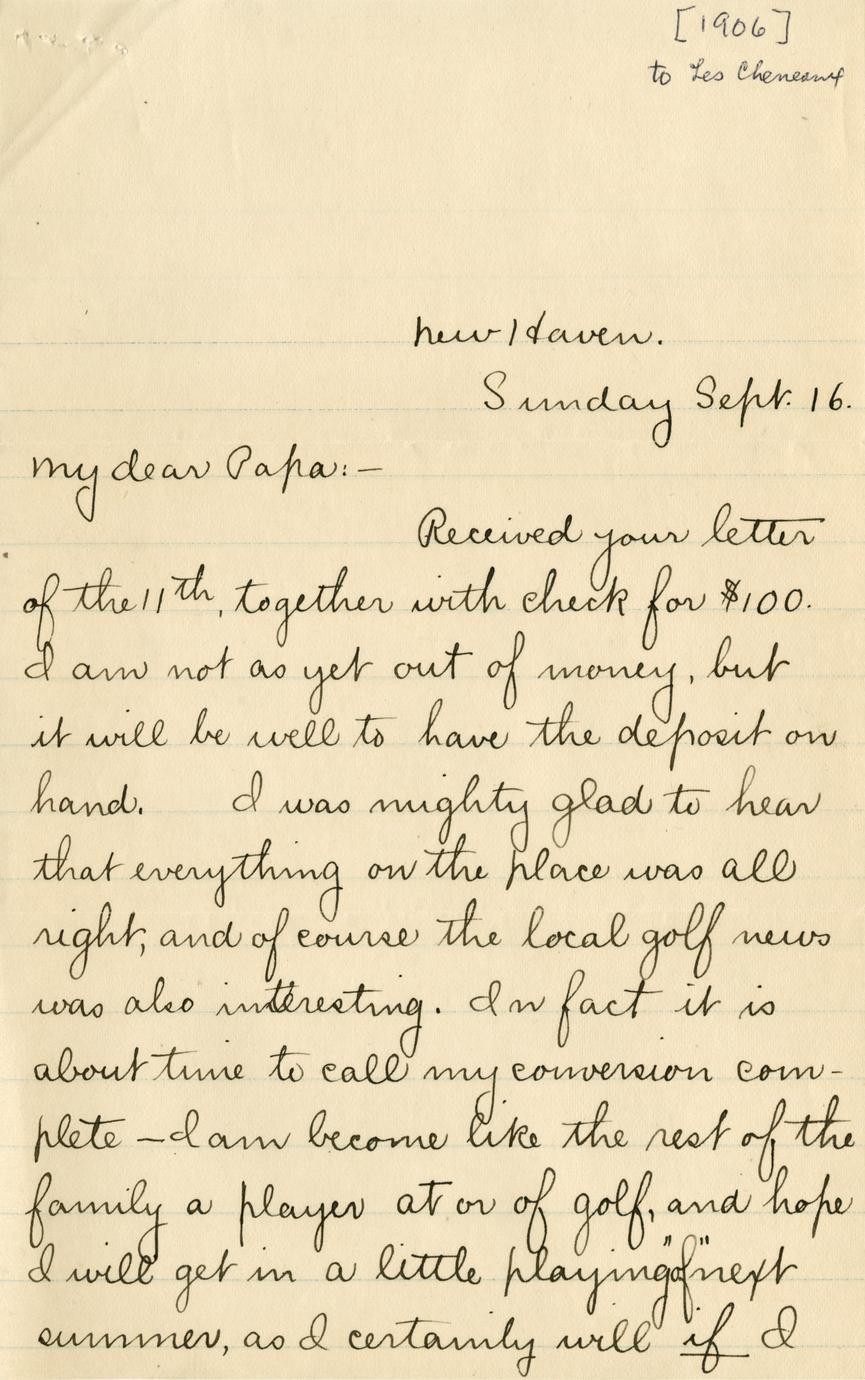 [1906]
to Les Cheneaux
New Haven.
Sunday Sept. 16.
My dear Papa:—
Received your letter
of the 11th, together with check for $100.
I am not as yet out of money, but
it will be well to have the deposit on
hand. I was mighty glad to hear
that everything on the place was all
right, and of course the local golf news
was also interesting. In fact it is
about time to call my conversion com-
plete — I am become like the rest of the
family a player at or of golf, and hope
I will get in a little playing "of" next
summer, as I certainly will if I